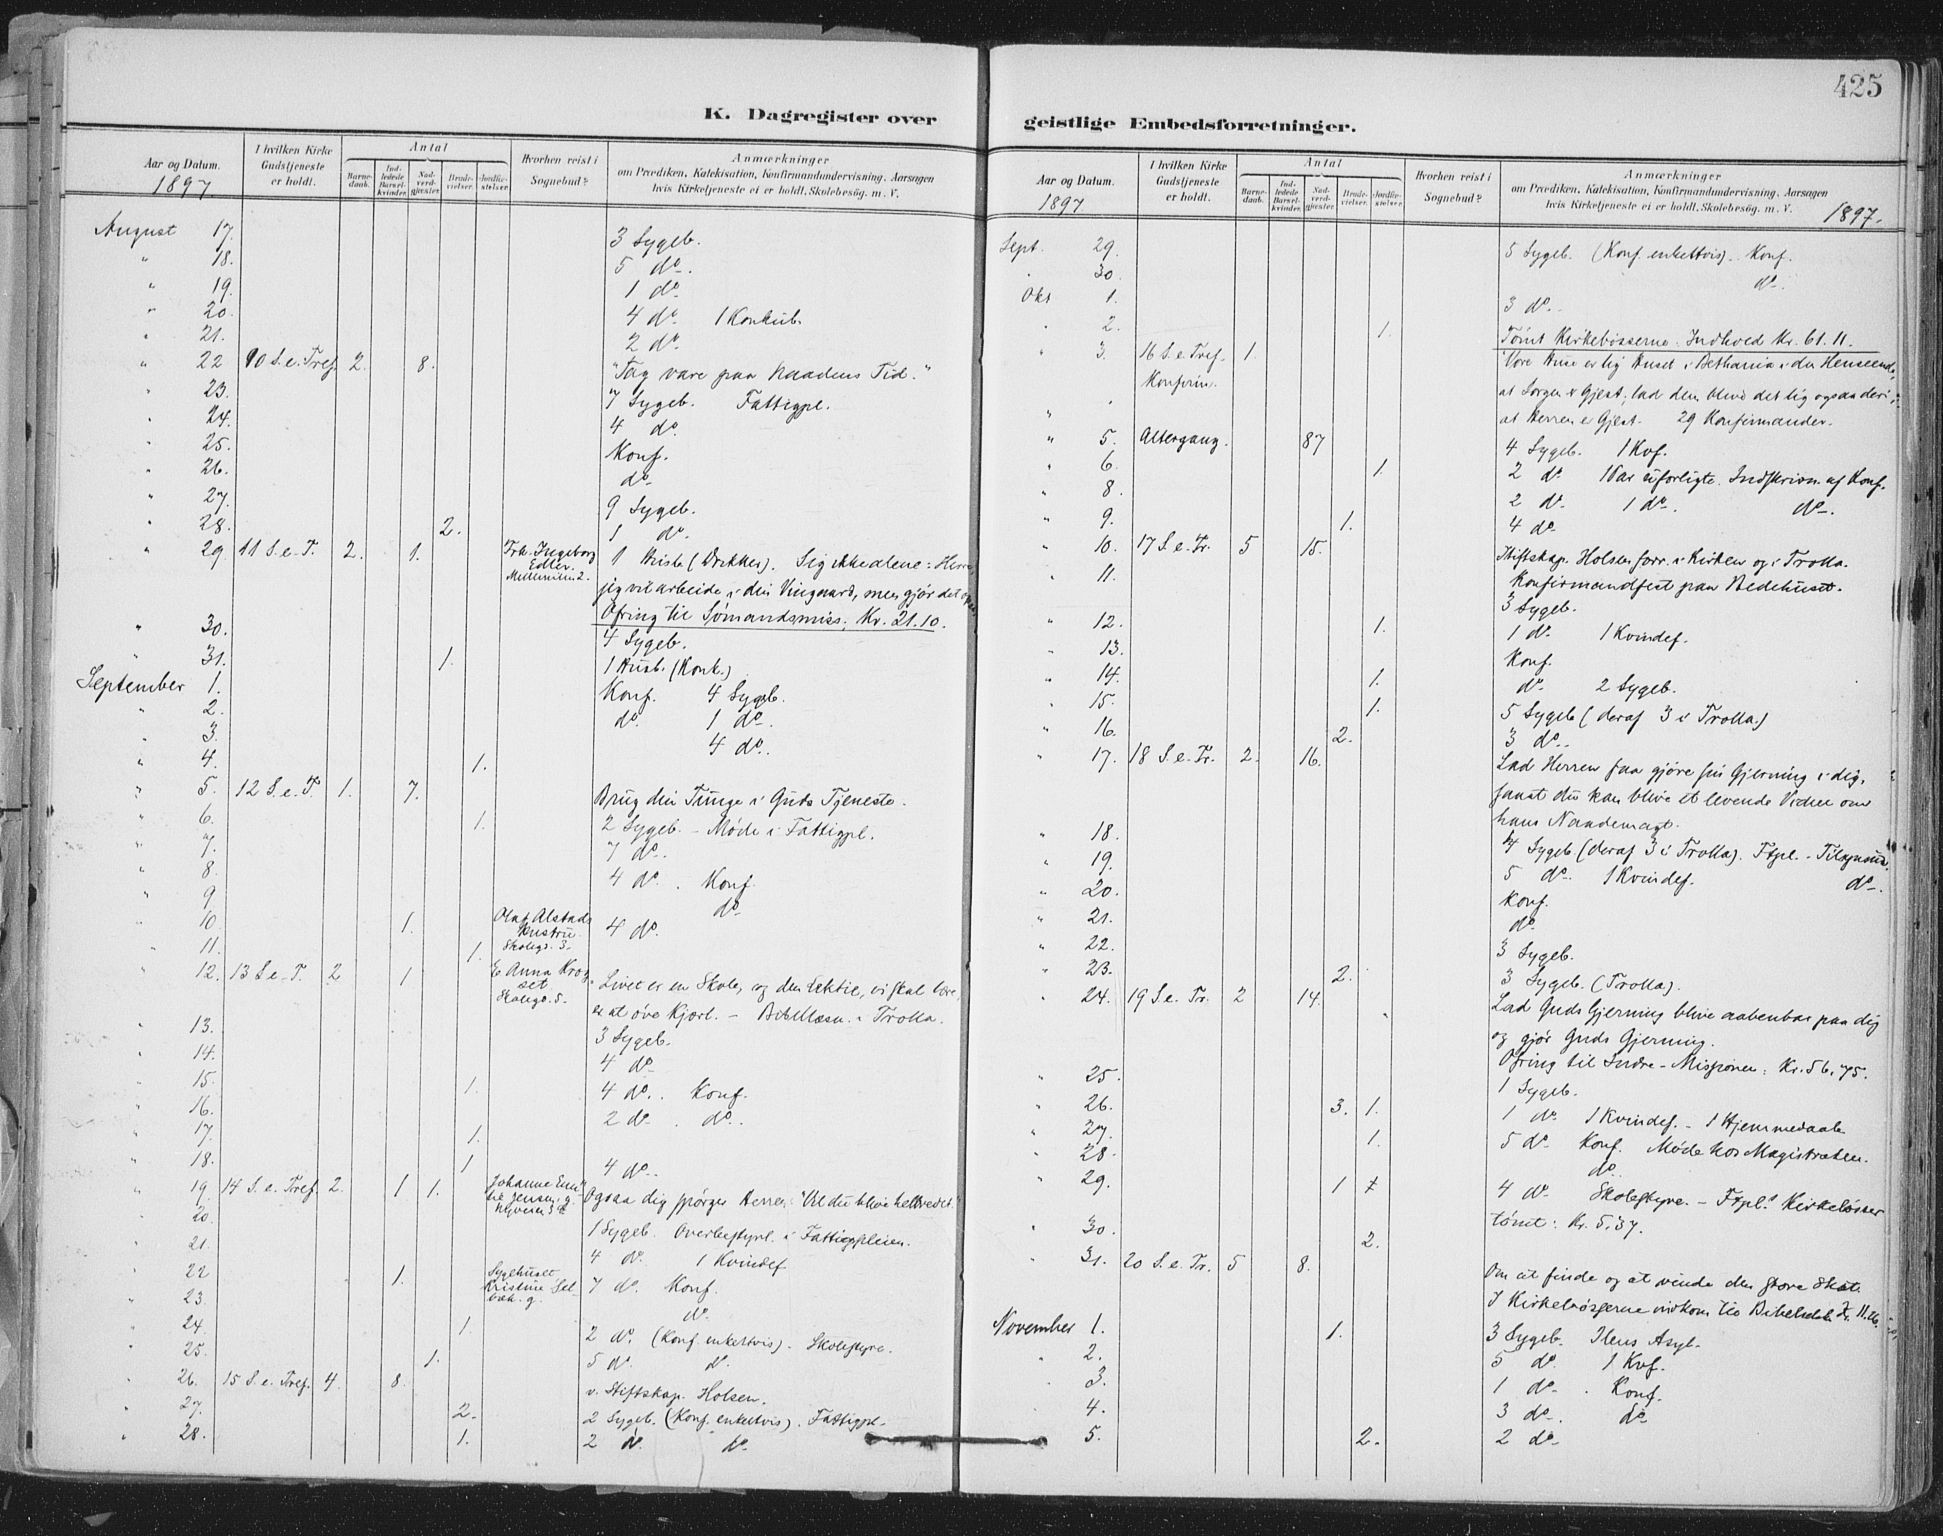 425
K. Dagregister over
Aar og Datum.
1897
I hvilken Kirke Gudstjeneste er holdt.
Antal
Barnedaab.
Indledede Barselkvinder.
Nadverdgjester.
Brudevielser.
Jordfæstelser.
Hvorhen reist i Sognebud?
Anmærkninger
om Prædiken, Katekisation, Konfirmandundervisning, Aarsagen
hvis Kirketjeneste ei er holdt, Skolebesög. m. V.
August 17. 3 Sygeb.
" 18. 5 do.
" 19. 1 do
" 20. 4 do 1 Konkub.
" 21. 2 do
" 22 10 S. e. Tref. 2. 8. "Tag vare paa Naadens Tid."
" 23. 7 Sygeb. Fattigpl.
" 24. 4 do.
" 25. Konf.
" 26. do
" 27. 9 Sygeb.
" 28. 2. 1 do.
" 29 11 S. e. T. 2. 1. Frk. Ingeborg
1 (Drikker). Sig ikke alene: Herre
jeg vil arbeide i din Vingaard, men gjør det
Ofring til Sømandsmiss. Kr. 21.10.
" 30. 4 Sygeb.
" 31. 1. 1 Husb. (Konk.)
September 1. Konf. 4 Sygeb.
" 2. do. 1 do.
" 3. 4 do.
" 4. 1.
" 5. 12 S. e. T. 1. 7. Brug din Tunge i Guds Tjeneste.
" 6. 1. 2 Sygeb. - Møde i Fattigpl.
" 7. 7 do.
" 8. 4 do. Konf.
" 9 do
" 10. 1. Olaf Alstads
Hustru
Skoleg. 3.
4 do.
" 11. 1.
" 12. 13 S. e. T. 2 1 Anna Krog
set
Skoleg. 5.
Livet er en Skole, og den Lektie, vi skal lære,
er at øve Kjærl. - Bibellæsn. i Trolla.
" 13. 3 Sygeb.
" 14. 4 do
" 15. 1. 4 do. Konf.
" 16. 2 do. do.
" 17. 1.
" 18. 1 4 do.
" 19. 14 S. e. Tref. 2. 1 1. Johanne
Ogsaa dig spørger Herren: "Vil du blive helbredet."
" 20. 1 Sygeb. Overbestyrl. i Fattigpleien.
" 21. 4 do. 1 Kvindef
" 22 1. Sygehuset
Kristine Selbæk. g.
7 do. Konf.
" 23. do.
" 24. 1. 2 do. (Konf. enkeltvis). Skolestyre.
" 25. 1. 5 do. do.
" 26. 15 S. e. Tref. 4. 8. v. Stiftskap. Holsen.
" 27 2. 2 Sygeb. (Konf. enkeltvis). Fattigpl.
" 28. 1. 2 do. do.
geistlige Embedsforretninger.
Aar og Datum.
1897
I hvilken Kirke Gudstjeneste er holdt.
Antal
Barnedaab.
Indledede Barselkvinder.
Nadverdgjester.
Brudevielser.
Jordfæstelser.
Hvorhen reist i Sognebud?
Anmærkninger
om Prædiken, Katekisation, Konfirmandundervisning, Aarsagen
hvis Kirketjeneste ei er holdt, Skolebesög. m. V. 1897.
Sept. 29. 5 Sygeb. (Konf. enkeltvis). Konf.
" 30. do.
Okt 1. 3 do.
" 2. 1. Tømt Kirkebøsserne. Indhold Kr. 61.11.
" 3. 16 S. e. Tref. 1. Vore Huse er lig Huset i Bethania i den Henseende,
Konfirm. at Sorgen er Gjest; lad dem blive det lig ogsaa deri,
at Herren er Gjest. 29 Konfirmander.
" 5. Altergang. 87 4 Sygeb. 1 Kvf.
" 6. 1. 2 do Par uforligte. Indskrivn. af Konf.
" 8. 2 do. 1 do. do.
" 9. 1. 4 do
" 10. 17 S. e. Tr. 5 15. Stiftskap. Holsen forr. i Kirken og i Trolla.
" 11. Konfirmandfest paa Bedehuset.
3 Sygeb.
" 12. 1. 1 do. 1 Kvindef.
" 13. Konf.
" 14. 1. do. 2 Sygeb.
" 15. 1. 5 Sygeb (deraf 3 i Trolla.)
" 16. 2. 3 do.
" 17. 18 S. e. Tr. 2. 16. Lad Herren faa gjøre sin Gjerning i dig,
saa at du kan blive et levende Vidne om
hans Naademagt.
" 18. 4 Sygeb (deraf 3 i Trolla). Ftpl. - Tilsynsud.
" 19. 5 do. 1 Kvindef. do.
" 20. Konf.
" 21. do.
" 22. 3 Sygeb.
" 23. 2. 3 Sygeb. (Trolla).
" 24. 19 S. e. Tr. 2 14. Lad Guds Gjerning blive aabenbar paa dig
og gjør Guds Gjerning.
Ofring til Indre-Missionen: Kr. 56.75.
" 25. 1 Sygeb.
" 26. 3. 1. 1 do. 1 Kvindef. - 1 Hjemmedaab
" 27. 1. 5 do. Konf. Møde hos Magistraten.
" 28 do.
" 29. 1 4 do. Skolestyre. - Ftpl. Kirkebøsser
tømt: Kr. 5.37.
" 30. 2.
" 31. 20 S. e. Tr. 5 8. Om at finde og at vinde den store Skat.
I Kirkebøsserne indkom til Bibelselsk. Kr. 11.26.
November 1. 1. 3 Sygeb. Ilens Asyl.
" 2. 5 do. 1 Kvf.
" 3. 1 do. Konf.
" 4. 3 do. do
" 5. 2. 2 do